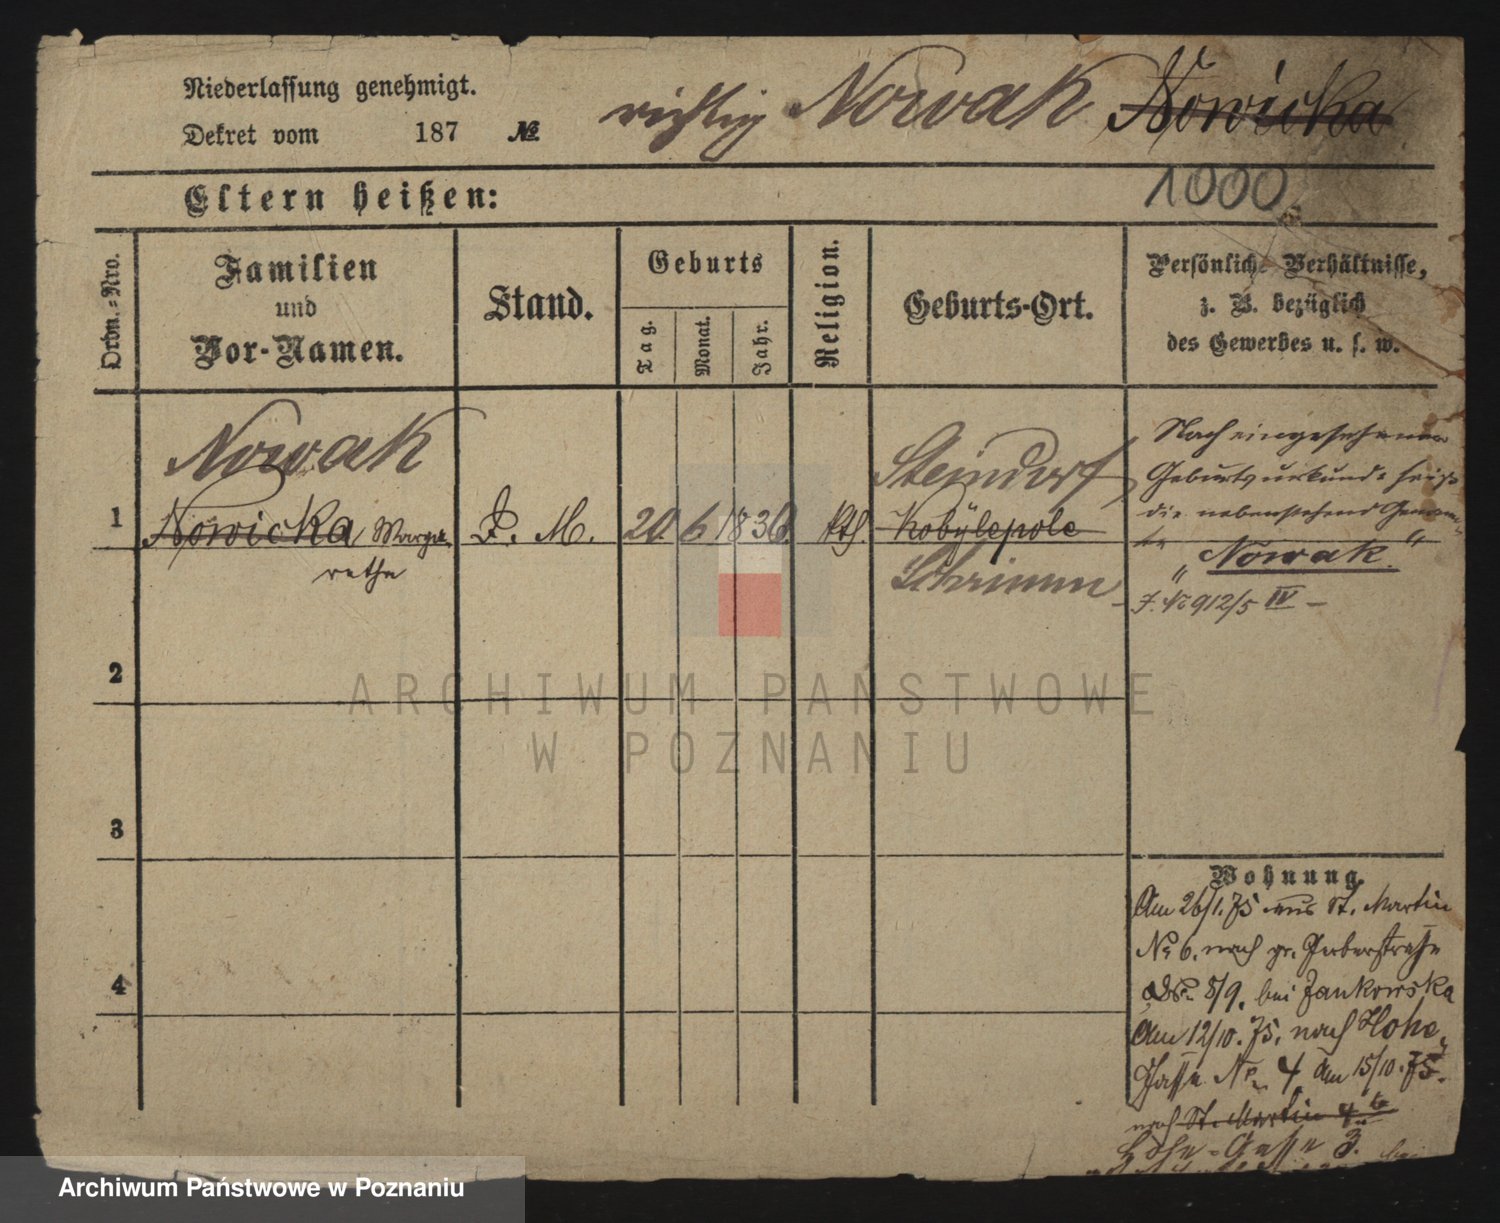 Niederlassung genehmigt.
Dekret vom 187 №
richtig Nowak Nowicka
Eltern heißen:
1000
Ordn.-Nro.
Familien
und
Vor-Namen.
Stand.
Geburts
Tag.
Monat.
Jahr.
Religion.
Geburts-Ort.
Persönliche Verhältnisse,
z. B. bezüglich
des Gewerbes u. s. w.
Nowak
1 Nowicka Marga-
rethe
D. M.
20. 6 1836.
kth.
Steindorf
Kobylepole
Schrimm
Nach eingesehener
Geburtsurkunde heißt
die nebenstehend Genann-
te „Nowak."
J. № 912/5 IV –
2
3
4
Wohnung.
Am 26/1. 75 aus St. Martin
№ 6. nach gr. Gerberstraße
8/9. bei Jankowska
Am 12/10. 75. nach Hohe
Gasse Nr. 4 am 15/10. 75.
nach St. Martin 4
Hohe-Gasse 3. bei
ARCHIWUM PAŃSTWOWE
W POZNANIU
Archiwum Państwowe w Poznaniu